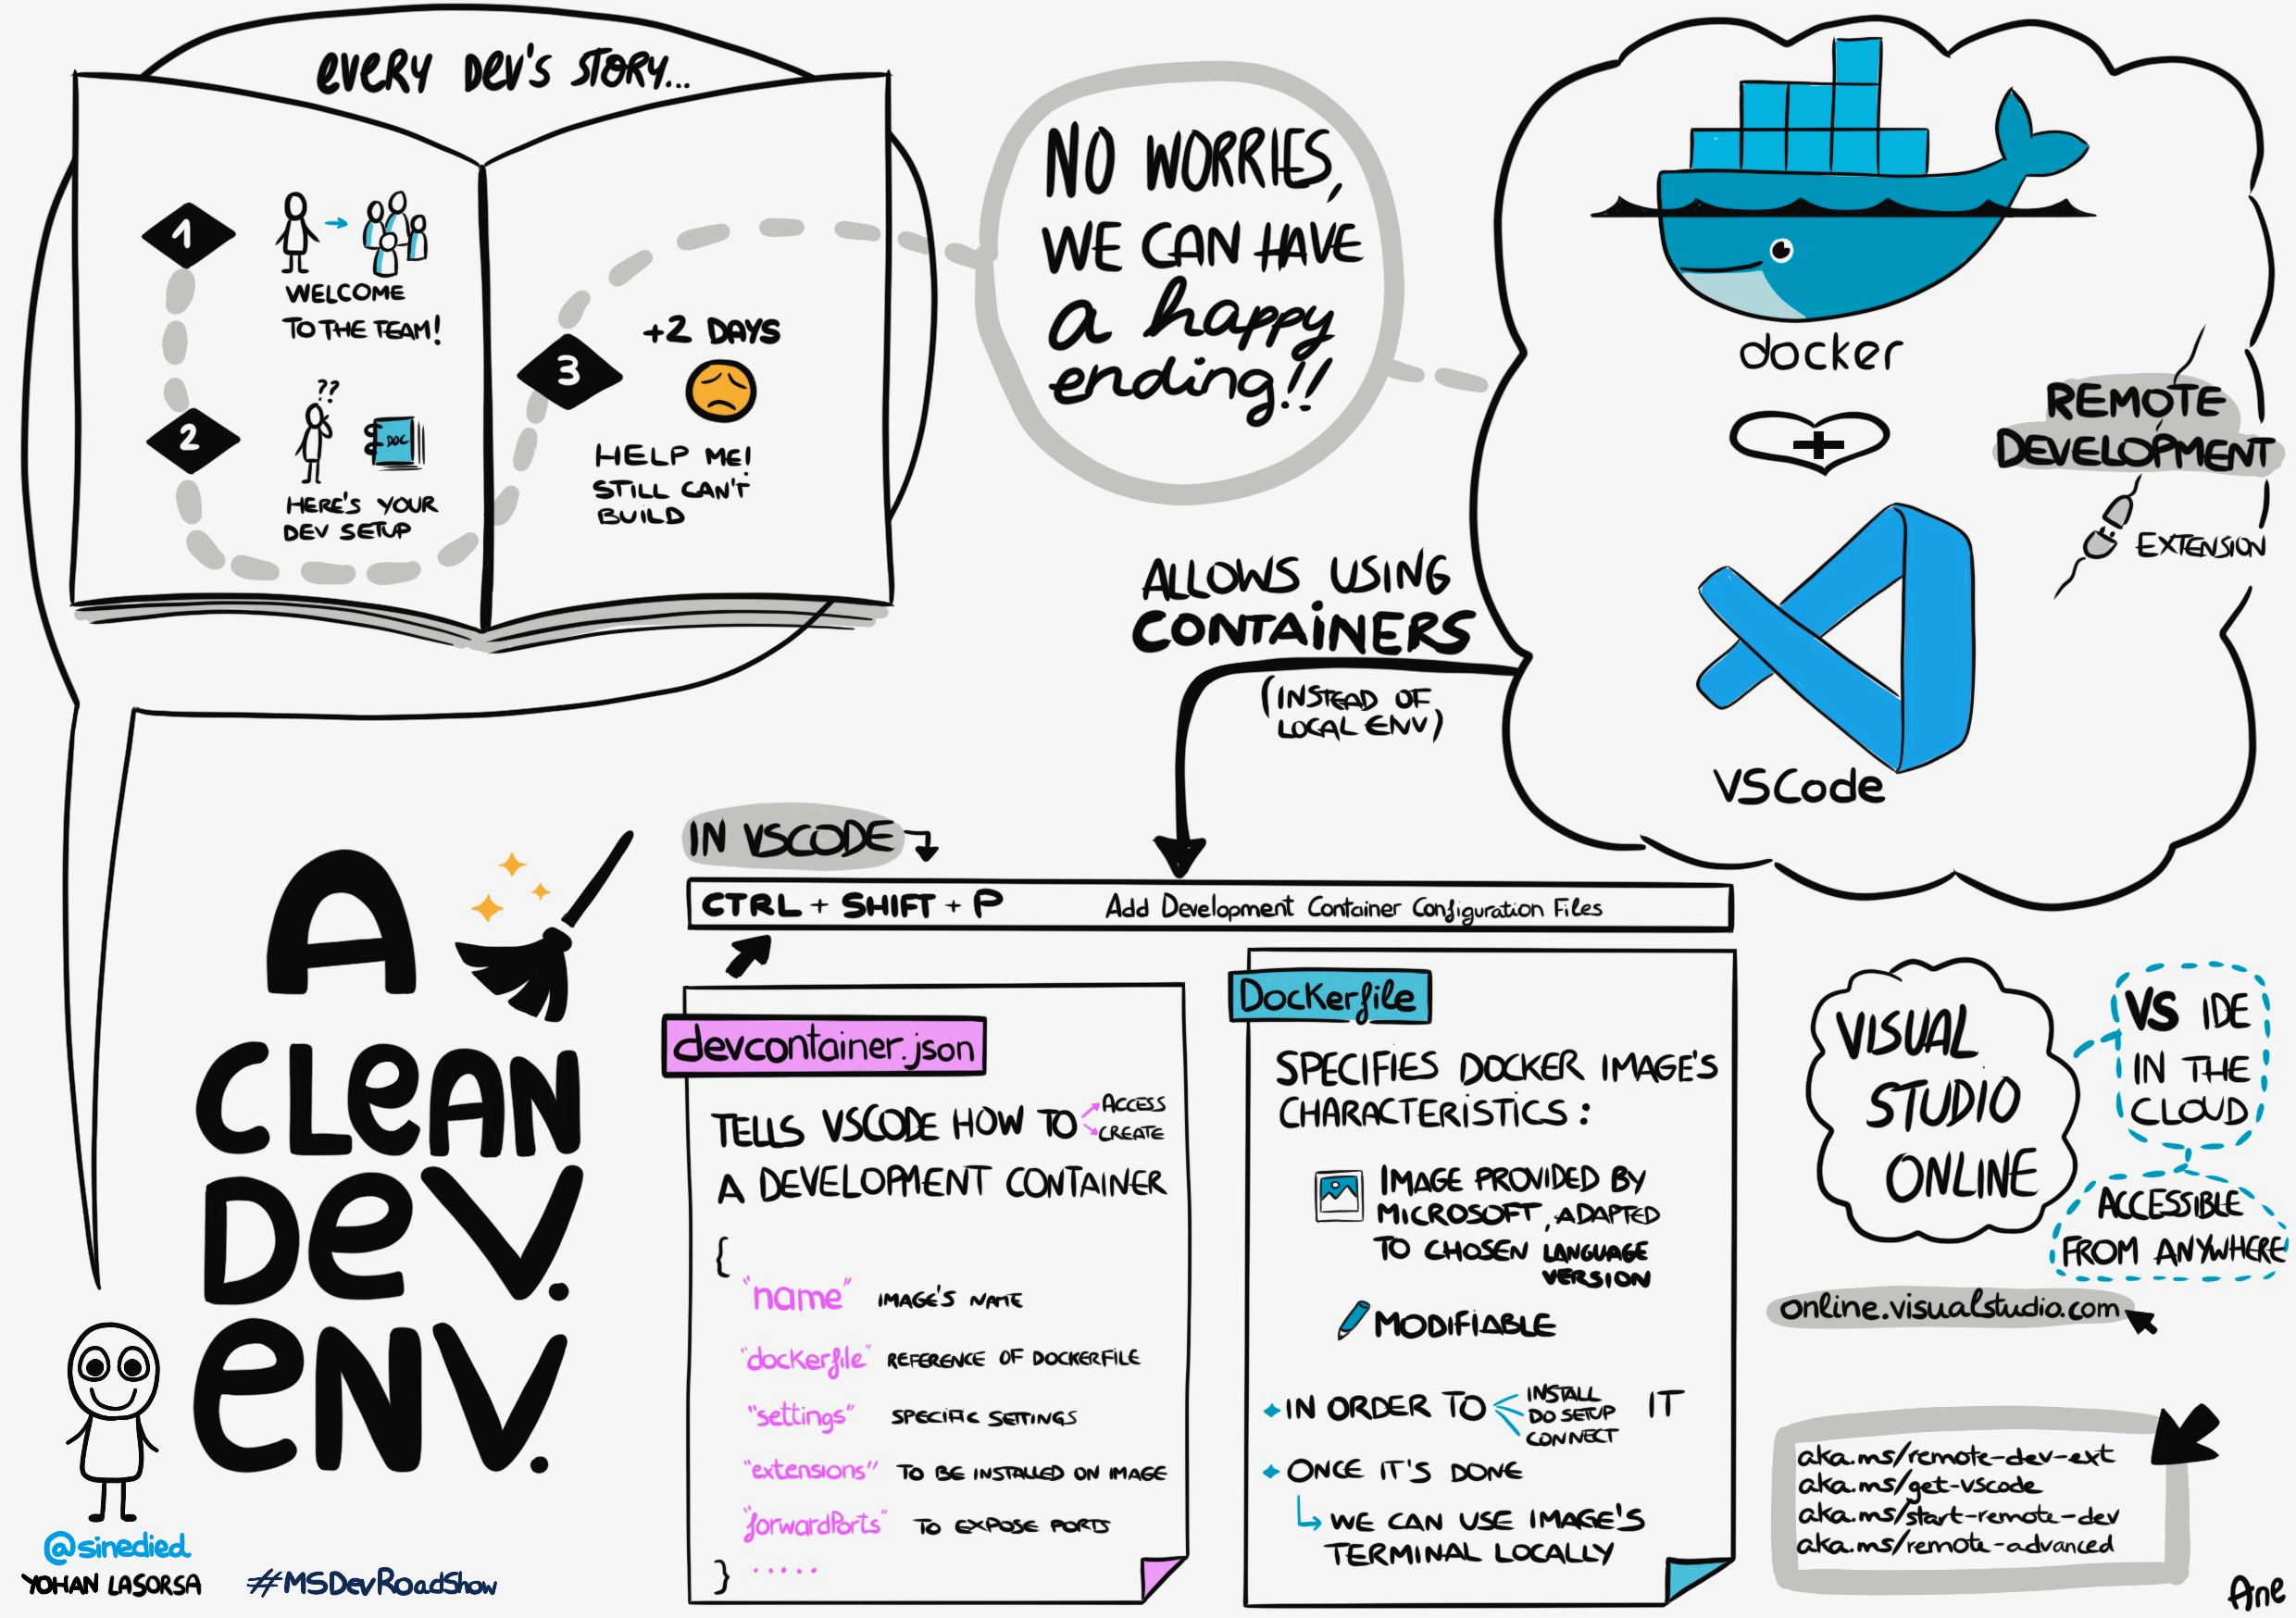 EVERY DEV'S STORY...
1
WELCOME
TO THE TEAM!
2
??
DOC
HERE'S YOUR
DEV SETUP
3
+2 DAYS
HELP ME!
STILL CAN'T
BUILD
NO WORRIES,
WE CAN HAVE
a happy
ending!!
docker
+
REMOTE
DEVELOPMENT
EXTENSION
VSCode
ALLOWS USING
CONTAINERS
(INSTEAD OF
LOCAL ENV)
A
CLEAN
DEV.
ENV.
@sinedied
YOHAN LASORSA
#MSDevRoadShow
IN VSCODE
CTRL + SHIFT + P Add Development Container Configuration Files
devcontainer.json
TELLS VSCODE HOW TO
ACCESS
CREATE
A DEVELOPMENT CONTAINER
{
"name" IMAGE'S NAME
"dockerfile" REFERENCE OF DOCKERFILE
"settings" SPECIFIC SETTINGS
"extensions" TO BE INSTALLED ON IMAGE
"forwardPorts" TO EXPOSE PORTS
} .....
Dockerfile
SPECIFIES DOCKER IMAGE'S
CHARACTERISTICS:
IMAGE PROVIDED BY
MICROSOFT, ADAPTED
TO CHOSEN LANGUAGE
VERSION
MODIFIABLE
IN ORDER TO
INSTALL
DO SETUP
CONNECT
IT
ONCE IT'S DONE
WE CAN USE IMAGE'S
TERMINAL LOCALLY
VISUAL
STUDIO
ONLINE
VS IDE
IN THE
CLOUD
ACCESSIBLE
FROM ANYWHERE
online.visualstudio.com
aka.ms/remote-dev-ext
aka.ms/get-vscode
aka.ms/start-remote-dev
aka.ms/remote-advanced
Ane